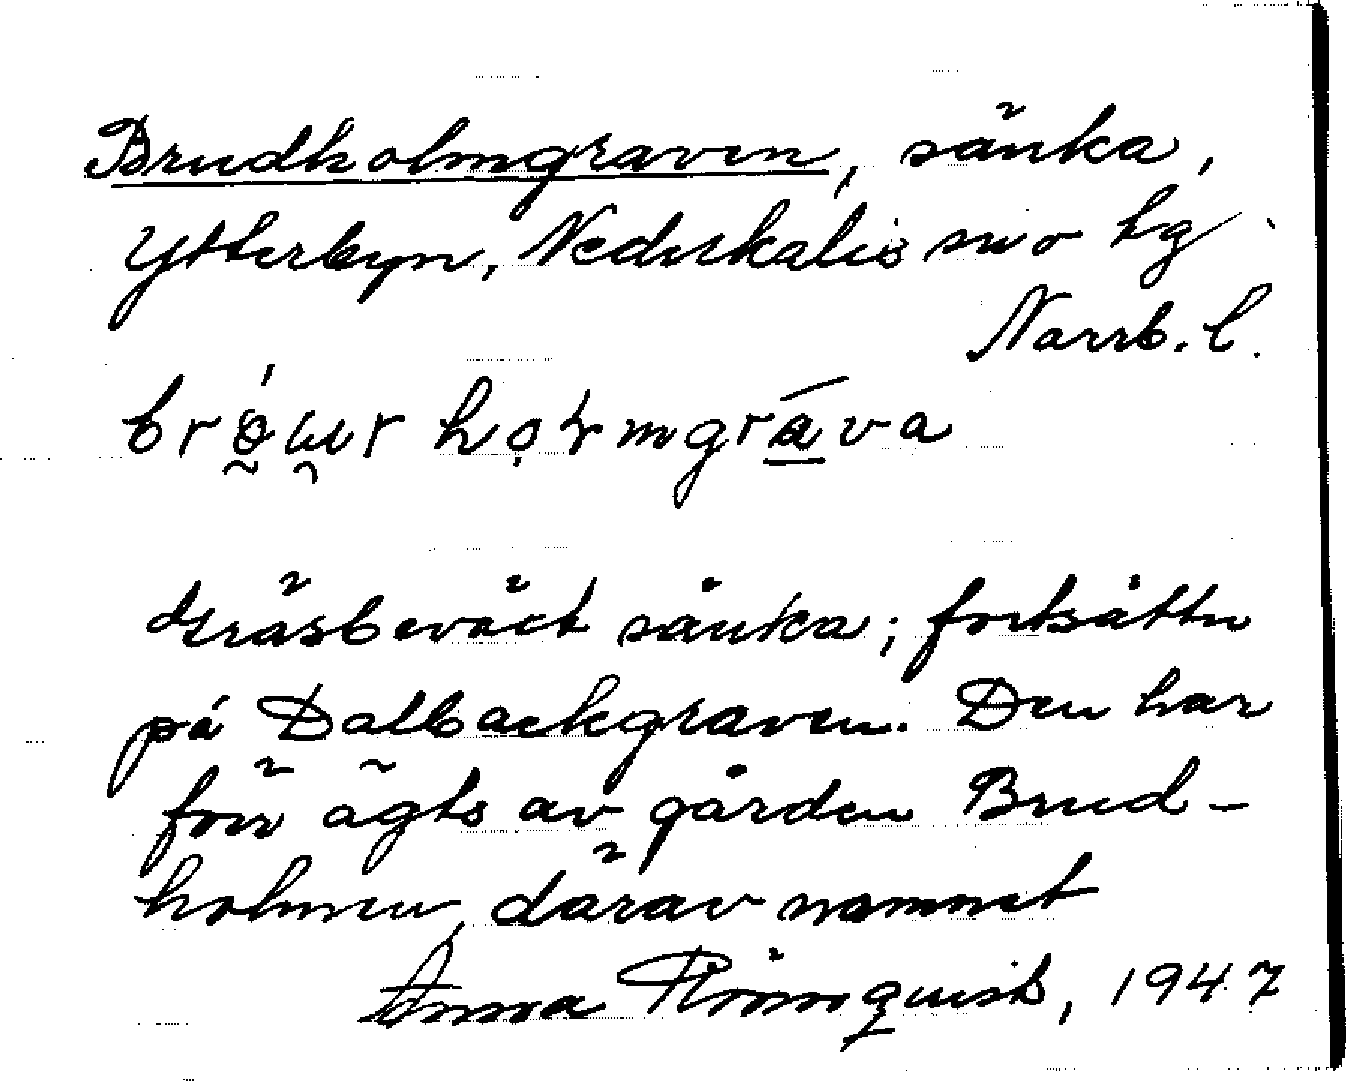 Brudholmgraven, sänka,
Ytterbyn, Nederkalix sn o tg
Norrb. l.
holmgrava
Gräsbeväxt sänka; fortsättn
på Dalbackgraven. Den har
förr ägts av gården Brud-
holmen, därav namnet
Anna Rönnquist, 1947